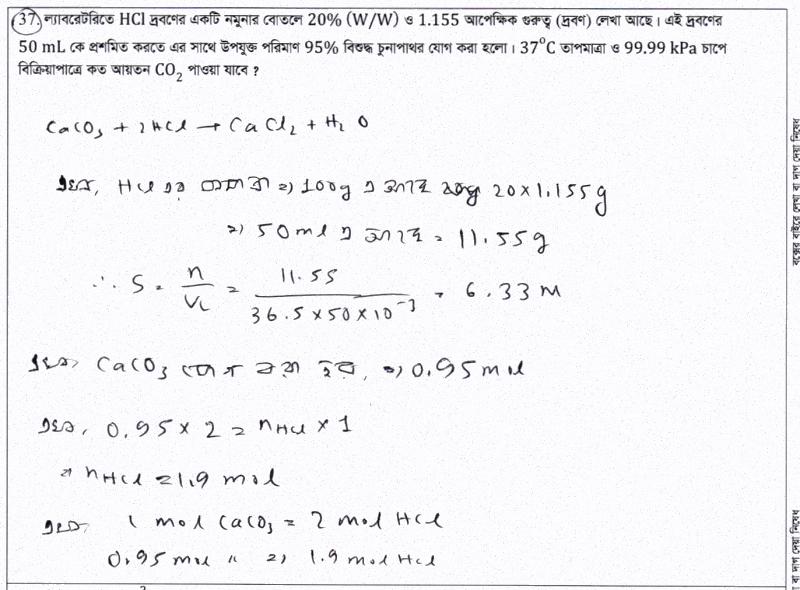 37. ল্যাবরেটরিতে HCl দ্রবণের একটি নমুনার বোতলে 20% (W/W) ও 1.155 আপেক্ষিক গুরুত্ব (দ্রবণ) লেখা আছে। এই দ্রবণের
50 mL কে প্রশমিত করতে এর সাথে উপযুক্ত পরিমাণ 95% বিশুদ্ধ চুনাপাথর যোগ করা হলো। 37°C তাপমাত্রা ও 99.99 kPa চাপে
বিক্রিয়াপাত্রে কত আয়তন CO₂ পাওয়া যাবে ?
CaCO₃ + 2HCl → CaCl₂ + H₂O
এখন, HCl এর ⇒ 100g এ আছে 20 × 1.155g
⇒ 50ml এ আছে = 11.55g
∴ S = n/VL = 11.55/(36.5 × 50 × 10⁻³) = 6.33 M
এখন, CaCO₃ যোগ করা হয়, ⇒ 0.95 mol
এখন, 0.95 × 2 = nHCl × 1
⇒ nHCl = 1.9 mol
এখন, 1 mol CaCO₃ = 2 mol HCl
0.95 mol " ⇒ 1.9 mol HCl